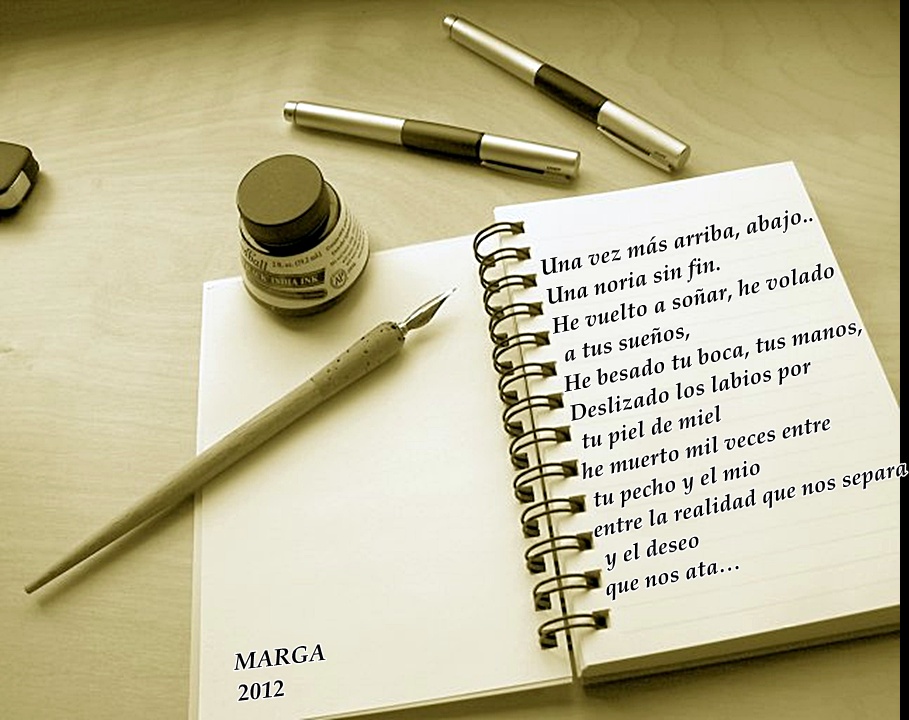 Una vez más arriba, abajo..
Una noria sin fin.
He vuelto a soñar, he volado
a tus sueños,
He besado tu boca, tus manos,
Deslizado los labios por
tu piel de miel
he muerto mil veces entre
tu pecho y el mio
entre la realidad que nos separa
y el deseo
que nos ata...
1 fl. oz. (29.5 mL)
INDIA INK
MARGA
2012